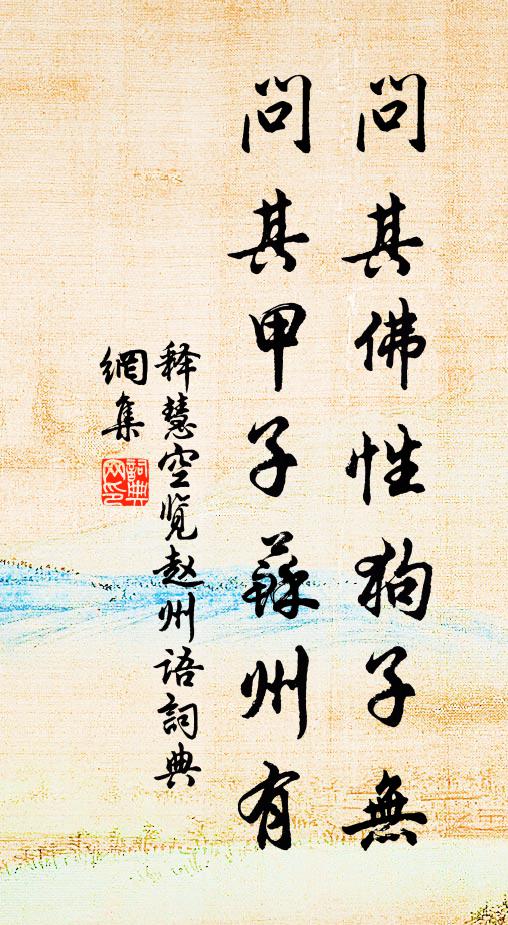 問其佛性狗子無
問其甲子蘇州有
释慧空览赵州语詞典
網集
詞典
网印